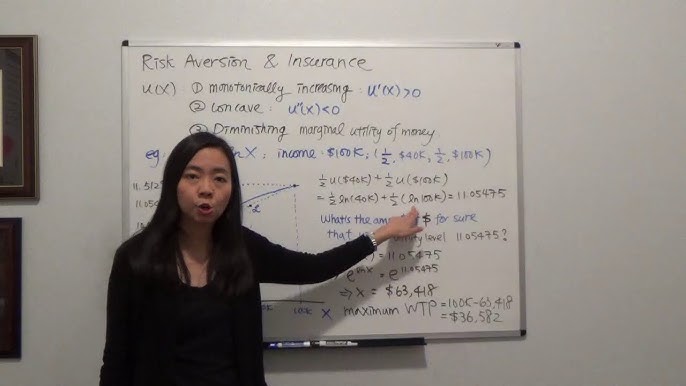 Risk Aversion & Insurance
U(X) : ① monotonically increasing : U'(X)>0
② Concave : U"(X)<0
③ Diminishing marginal utility of money.
eg. X ; income = $100K ; (½, $40K, ½, $100K)
½ U($40K) + ½ U($100K)
= ½ ln(40K) + ½ (ln100K) = 11.05475
What's the $ for sure
that level 11.05475?
= 11.05475
⇒ e = e^11.05475
⇒ X = $63,418
maximum WTP = 100K-63,418
= $36,582
11.512
11.05
100K X